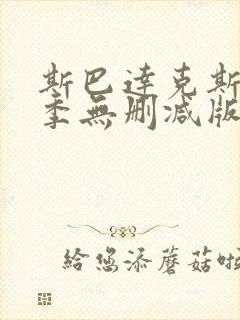 斯巴達克斯
季無刪減版
給您添蘑菇啦